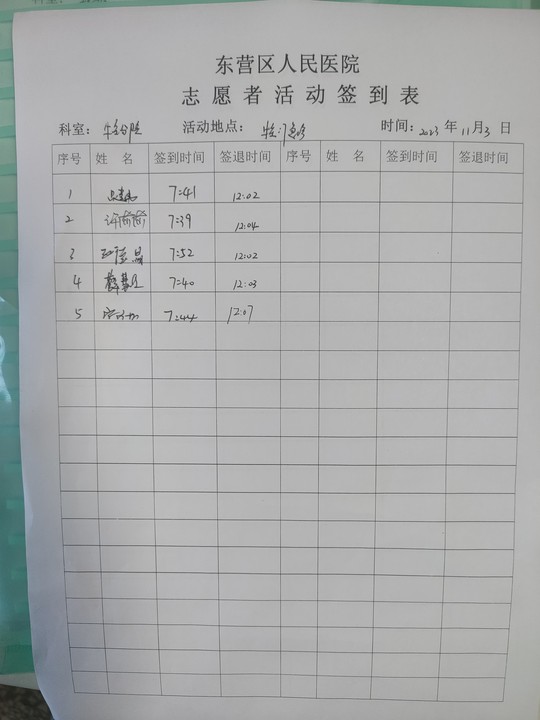 东营区人民医院
志愿者活动签到表
科室： 活动地点： 时间：2023年11月3日
序号 姓名 签到时间 签退时间 序号 姓名 签到时间 签退时间
1 7:41 12:02
2 许 7:39 12:04
3 7:52 12:02
4 7:40 12:03
5 7:44 12:07